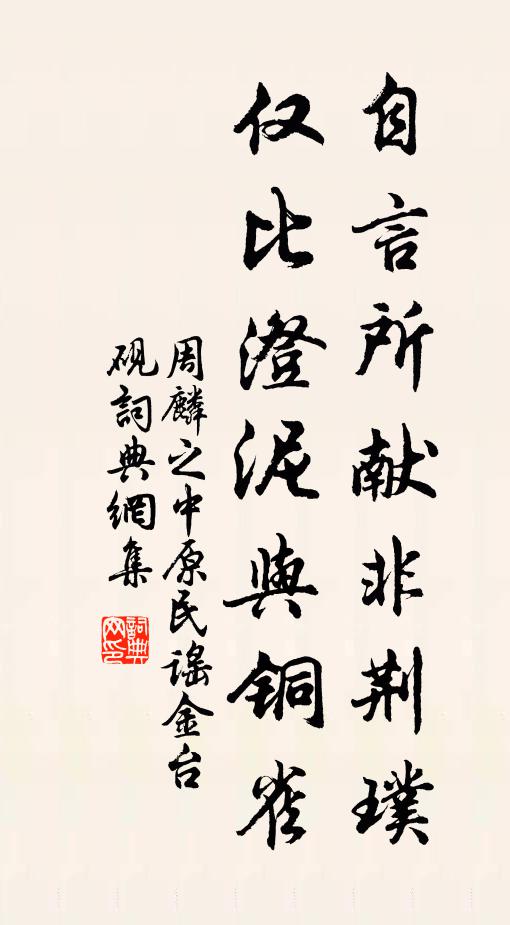 自言所献非荆璞
仅比澄泥與铜雀
周麟之中原民谣金台
砚詞典網集
詞典
网印